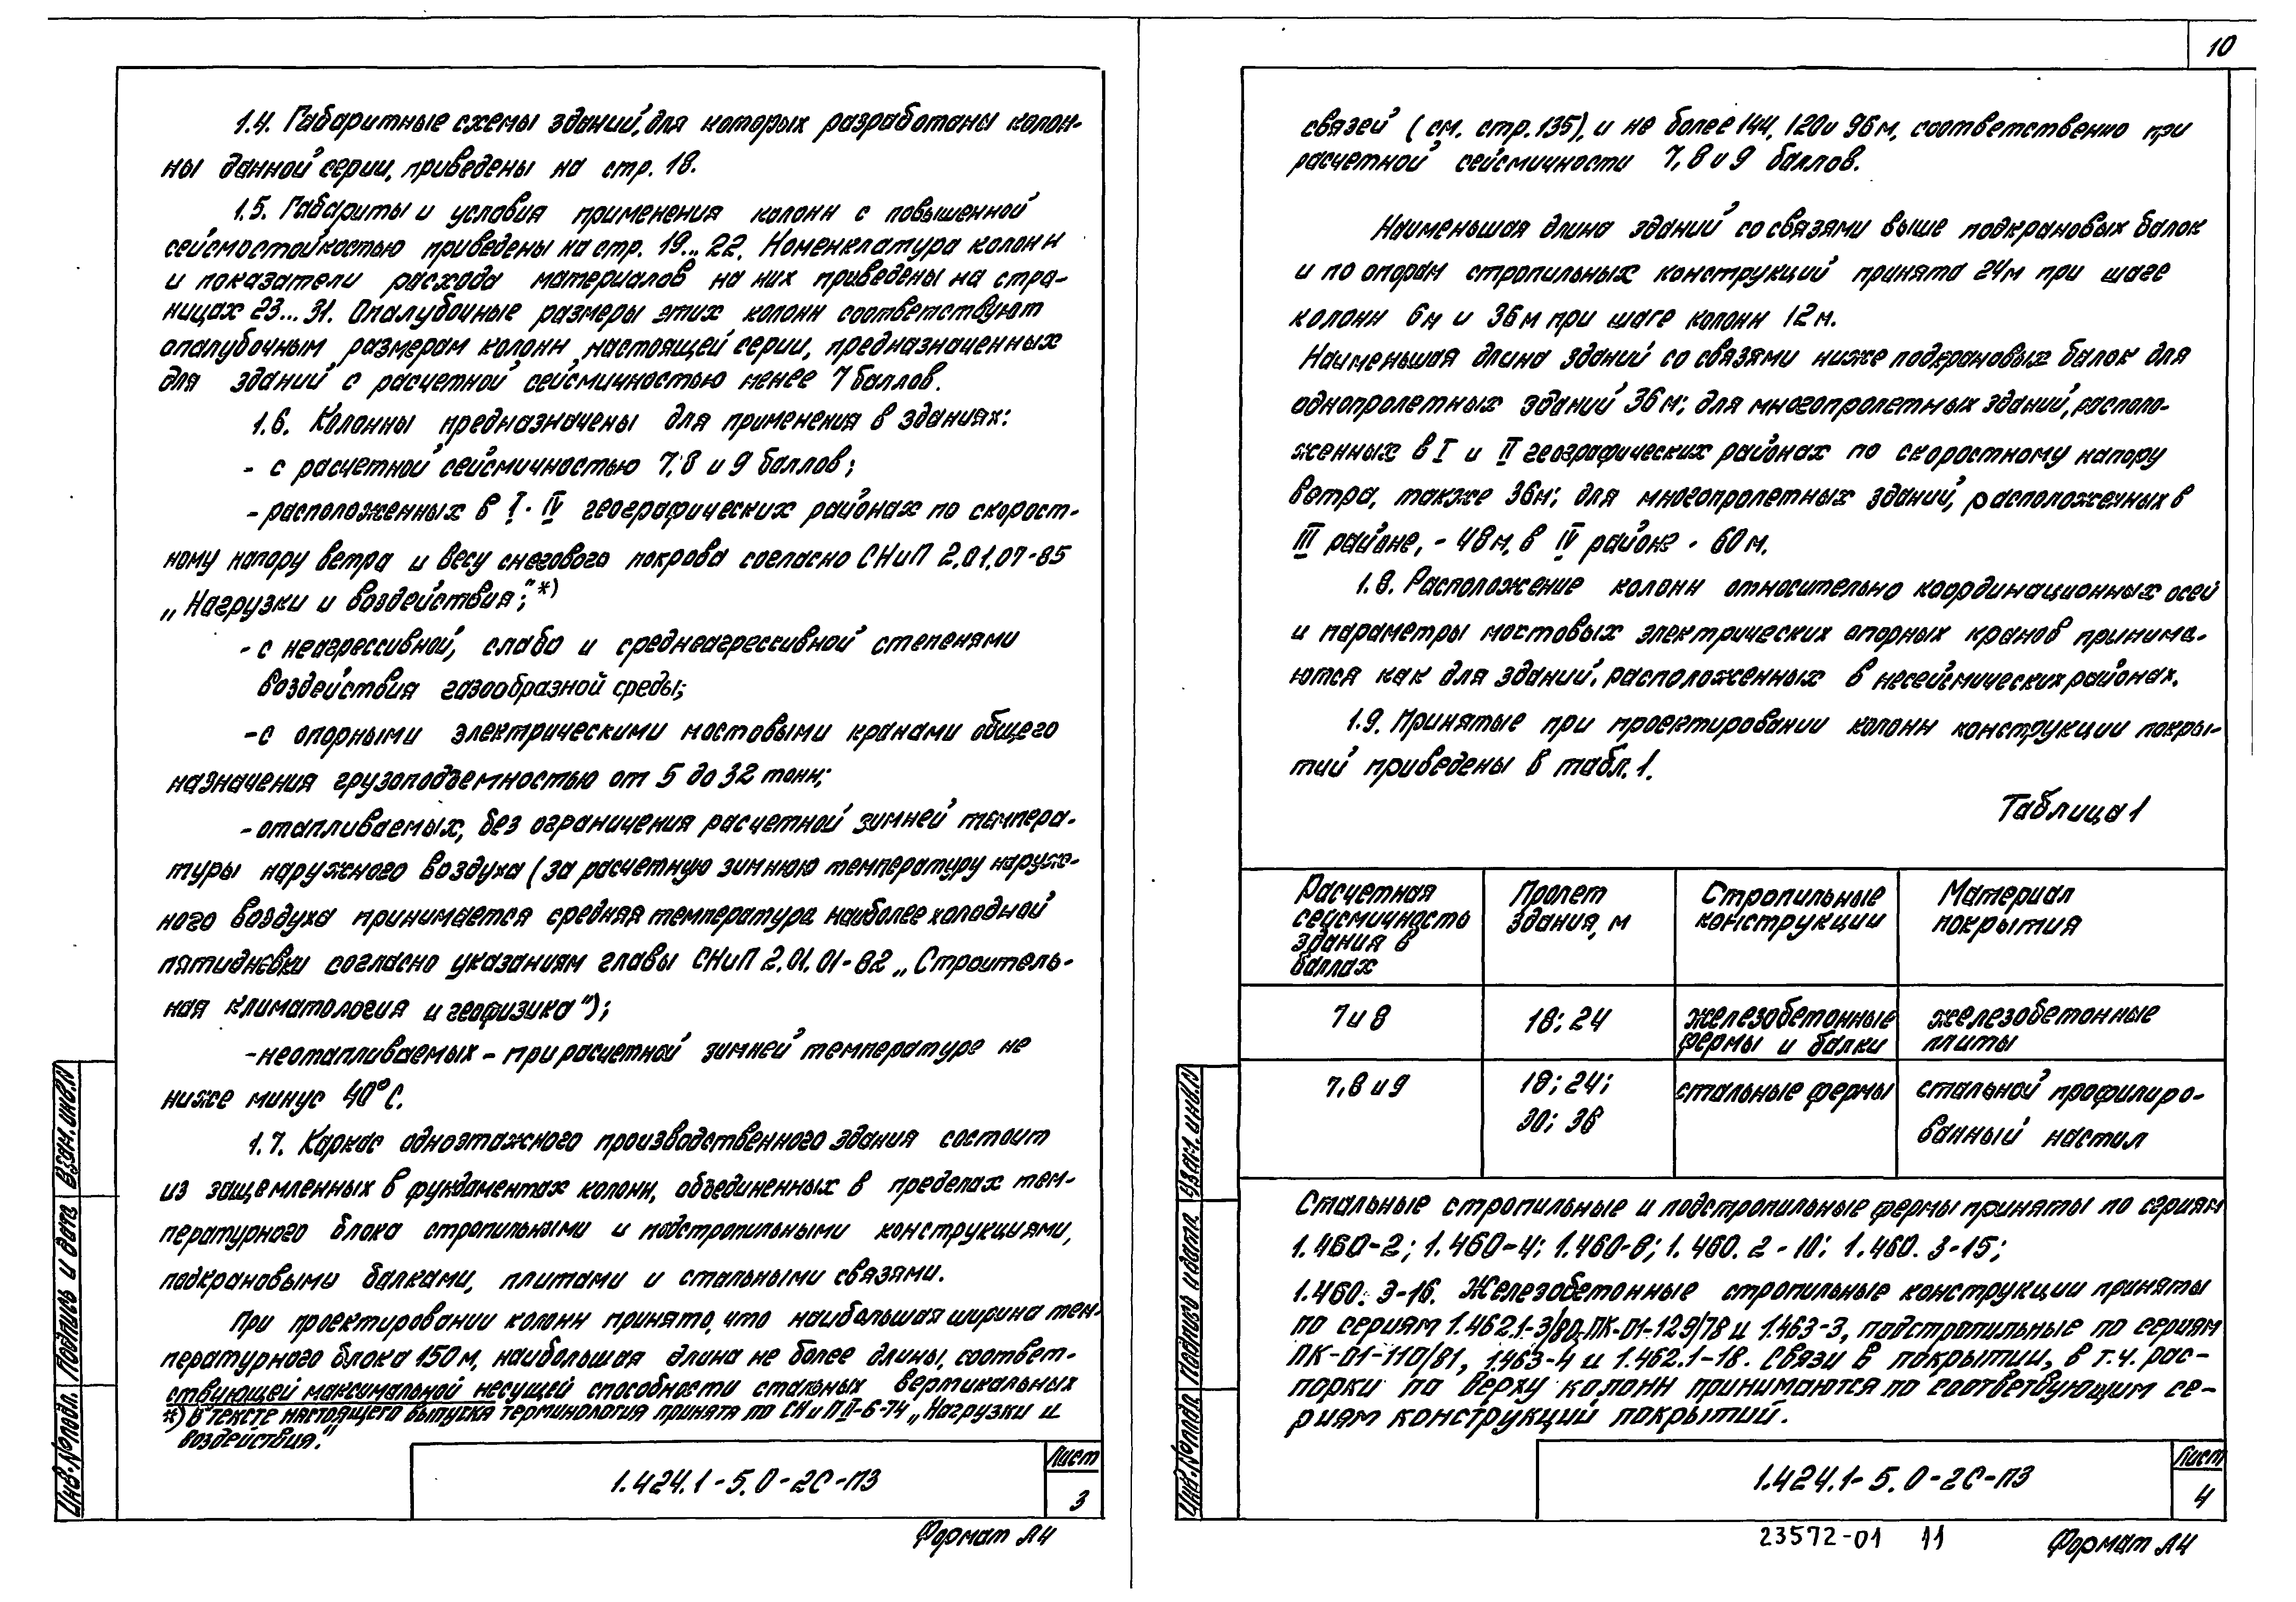 10
1.4. Габаритные схемы зданий, для которых разработаны колон-
ны данной серии, приведены на стр. 18.
1.5. Габариты и условия применения колонн с повышенной
сейсмостойкостью приведены на стр. 19...22. Номенклатура колонн
и показатели расхода материалов на них приведены на стра-
ницах 23...31. Опалубочные размеры этих колонн соответствуют
опалубочным размерам колонн настоящей серии, предназначенных
для зданий с расчетной сейсмичностью менее 7 баллов.
1.6. Колонны предназначены для применения в зданиях:
- с расчетной сейсмичностью 7, 8 и 9 баллов;
- расположенных в I - IV географических районах по скорост-
ному напору ветра и весу снегового покрова согласно СНиП 2.01.07-85
„Нагрузки и воздействия";*)
- с неагрессивной, слабо и среднеагрессивной степенями
воздействия газообразной среды;
- с опорными электрическими мостовыми кранами общего
назначения грузоподъемностью от 5 до 32 тонн;
- отапливаемых, без ограничения расчетной зимней темпера-
туры наружного воздуха (за расчетную зимнюю температуру наруж-
ного воздуха принимается средняя температура наиболее холодной
пятидневки согласно указаниям главы СНиП 2.01.01-82 „Строитель-
ная климатология и геофизика");
- неотапливаемых - при расчетной зимней температуре не
ниже минус 40°С.
1.7. Каркас одноэтажного производственного здания состоит
из защемленных в фундаментах колонн, объединенных в пределах тем-
пературного блока стропильными и подстропильными конструкциями,
подкрановыми балками, плитами и стальными связями.
При проектировании колонн принято, что наибольшая ширина тем-
пературного блока 150 м, наибольшая длина не более длины, соответ-
ствующей максимальной несущей способности стальных вертикальных
*) В тексте настоящего выпуска терминология принята по СНиП II-6-74 „Нагрузки и
воздействия."
1.424.1-5.0-2С-ПЗ
Лист
3
Формат А4
Инв.№подл. Подпись и дата Взам.инв.N
связей (см. стр. 135), и не более 144, 120 и 96 м, соответственно при
расчетной сейсмичности 7, 8 и 9 баллов.
Наименьшая длина зданий со связями выше подкрановых балок
и по опорам стропильных конструкций принята 24 м при шаге
колонн 6 м и 36 м при шаге колонн 12 м.
Наименьшая длина зданий со связями ниже подкрановых балок для
однопролетных зданий 36 м; для многопролетных зданий, располо-
женных в I и II географических районах по скоростному напору
ветра, также 36 м; для многопролетных зданий, расположенных в
III районе, - 48 м, в IV районе - 60 м.
1.8. Расположение колонн относительно координационных осей
и параметры мостовых электрических опорных кранов принима-
ются как для зданий, расположенных в несейсмических районах.
1.9. Принятые при проектировании колонн конструкции покры-
тий приведены в табл. 1.
Таблица 1
Расчетная
сейсмичность
здания в
баллах
Пролет
здания, м
Стропильные
конструкции
Материал
покрытия
7 и 8
18; 24
железобетонные
фермы и балки
железобетонные
плиты
7, 8 и 9
18; 24;
30; 36
стальные фермы
стальной профилиро-
ванный настил
Стальные стропильные и подстропильные фермы приняты по сериям
1.460-2; 1.460-4; 1.460-8; 1.460.2-10; 1.460.3-15;
1.460.3-16. Железобетонные стропильные конструкции приняты
по сериям 1.462.1-3/80, ПК-01-129/78 и 1.463-3, подстропильные по сериям
ПК-01-110/81, 1.463-4 и 1.462.1-18. Связи в покрытии, в т.ч. рас-
порки по верху колонн принимаются по соответвующим се-
риям конструкций покрытий.
1.424.1-5.0-2С-ПЗ
Лист
4
23572-01 11
Формат А4
Инв.№подл. Подпись и дата Взам.инв.N